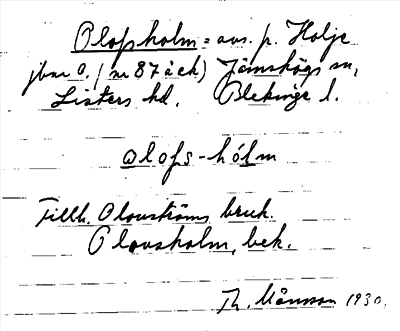 Olofsholm = avs. p. Holje
jbnr 0. (nr 87 å ek) Jämshögs sn,
Listers hd. Blekinge l.
olofs-hólm
Tillh. Olovströms bruk.
Olovsholm, bek.
Th. Månsson 1930.